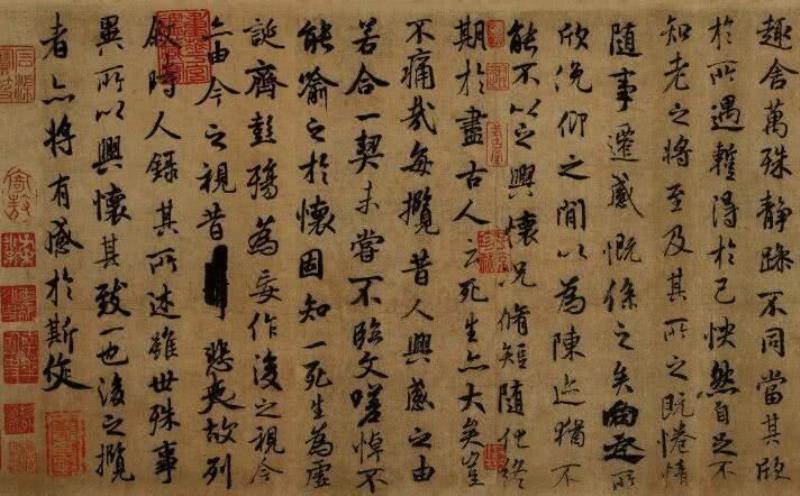 趣舍萬殊静躁不同當其欣
於所遇暫得於己怏然自足不
知老之將至及其所之既惓情
随事遷感慨係之矣向之所
欣俛仰之閒以為陳迹猶不
能不以之興懷況脩短随化終
期於盡古人云死生亦大矣豈
不痛哉每攬昔人興感之由
若合一契未嘗不臨文嗟悼不
能喻之於懷固知一死生為虛
誕齊彭殤為妄作後之視今
亦由今之視昔悲夫故列
叙時人錄其所述雖世殊事
異所以興懷其致一也後之攬
者亦將有感於斯作